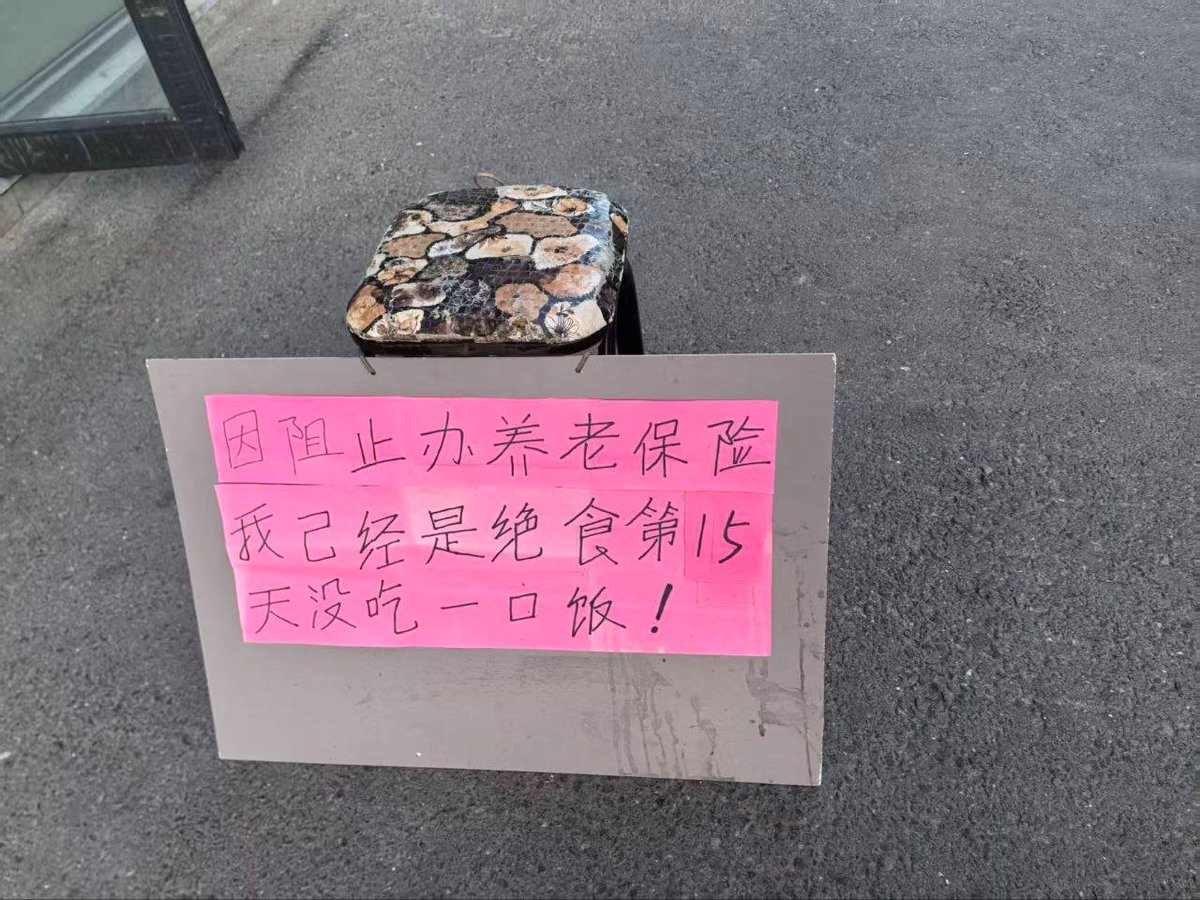 因阻止办养老保险
我己经是绝食第15
天没吃一口饭！